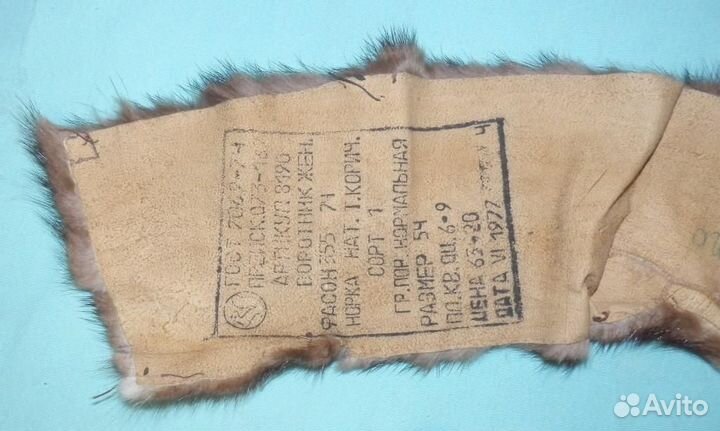 ГОСТ 7069-74
ПРЕЙСК.073-
АРТИКУЛ 8190
ВОРОТНИК ЖЕН.
ФАСОН 355 74
НОРКА НАТ. Т.КОРИЧ.
СОРТ 1
ГР.ПОР. НОРМАЛЬНАЯ
РАЗМЕР 54
ПЛ.КВ.ДЦ. 6-9
ЦЕНА 63-20
ДАТА VI 1977 Ч
Avito